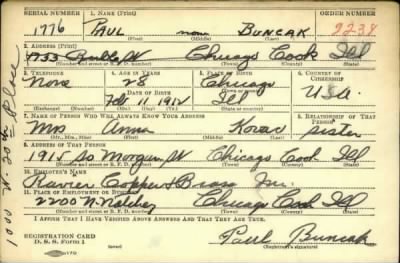 SERIAL NUMBER 1. NAME (Print) ORDER NUMBER
1776 PAUL none BUNCAK 9238
(First) (Middle) (Last)
2. ADDRESS (Print)
1733 Ruble St Chicago Cook Ill
(Number and street or R. F. D. number) (Town) (County) (State)
3. TELEPHONE 4. AGE IN YEARS 5. PLACE OF BIRTH 6. COUNTRY OF CITIZENSHIP
None 28 Chicago
DATE OF BIRTH
Feb 1912 Ill U.S.A.
(Exchange) (Number) (Mo.) (Day) (Yr.) (State or country)
7. NAME OF PERSON WHO WILL ALWAYS KNOW YOUR ADDRESS 8. RELATIONSHIP OF THAT PERSON
Mrs Anna sister
(Mr., Mrs., Miss) (First) (Middle) (Last)
9. ADDRESS OF THAT PERSON
So Morgan St Chicago Cook Ill
(Number and street or R. F. D. number) (Town) (County) (State)
10. EMPLOYER'S NAME
Copper & Brass Inc.
11. PLACE OF EMPLOYMENT OR BUSINESS
2200 N. Chicago Cook Ill
(Number and street or R. F. D. number) (Town) (County) (State)
I AFFIRM THAT I HAVE VERIFIED ABOVE ANSWERS AND THAT THEY ARE TRUE.
REGISTRATION CARD
D. S. S. Form 1 Paul Buncak
(Registrant's signature)
1000 W. 20th Place